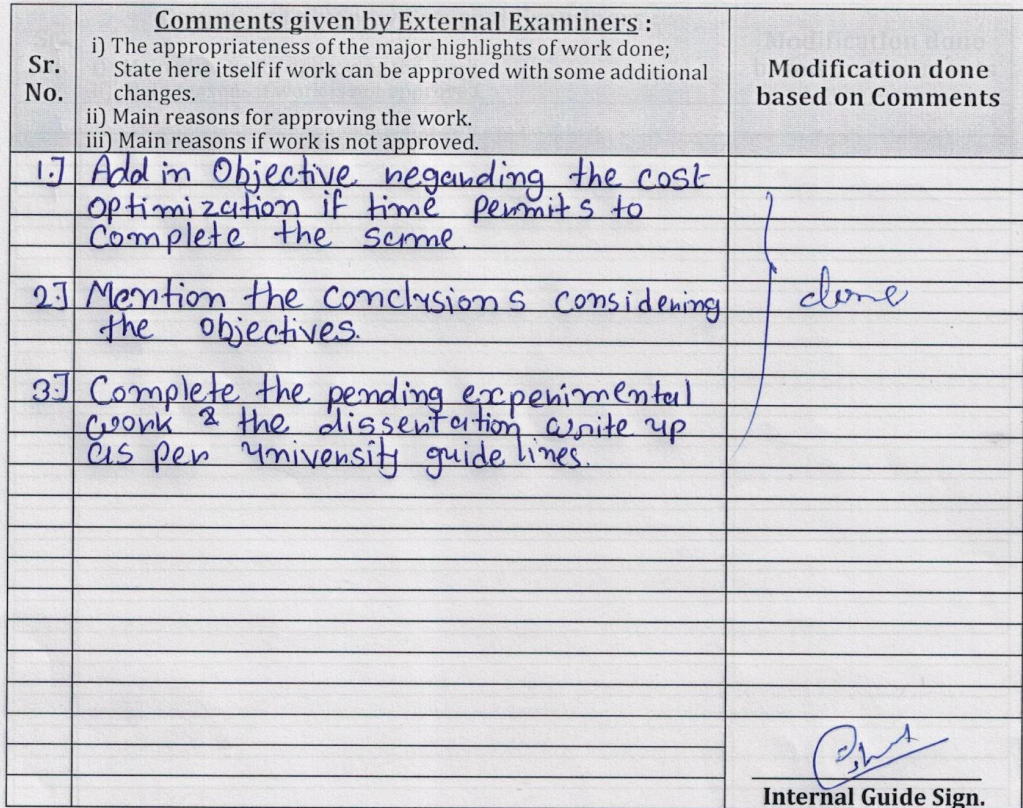 Comments given by External Examiners :
i) The appropriateness of the major highlights of work done;
State here itself if work can be approved with some additional
changes.
ii) Main reasons for approving the work.
iii) Main reasons if work is not approved.
Sr.
No.
Modification done
based on Comments
1.] Add in Objective regarding the cost
optimization if time permits to
complete the same.
2.] Mention the conclusions considering
the objectives.
3.] Complete the pending experimental
work & the dissertation write up
as per university guide lines.
done
Internal Guide Sign.